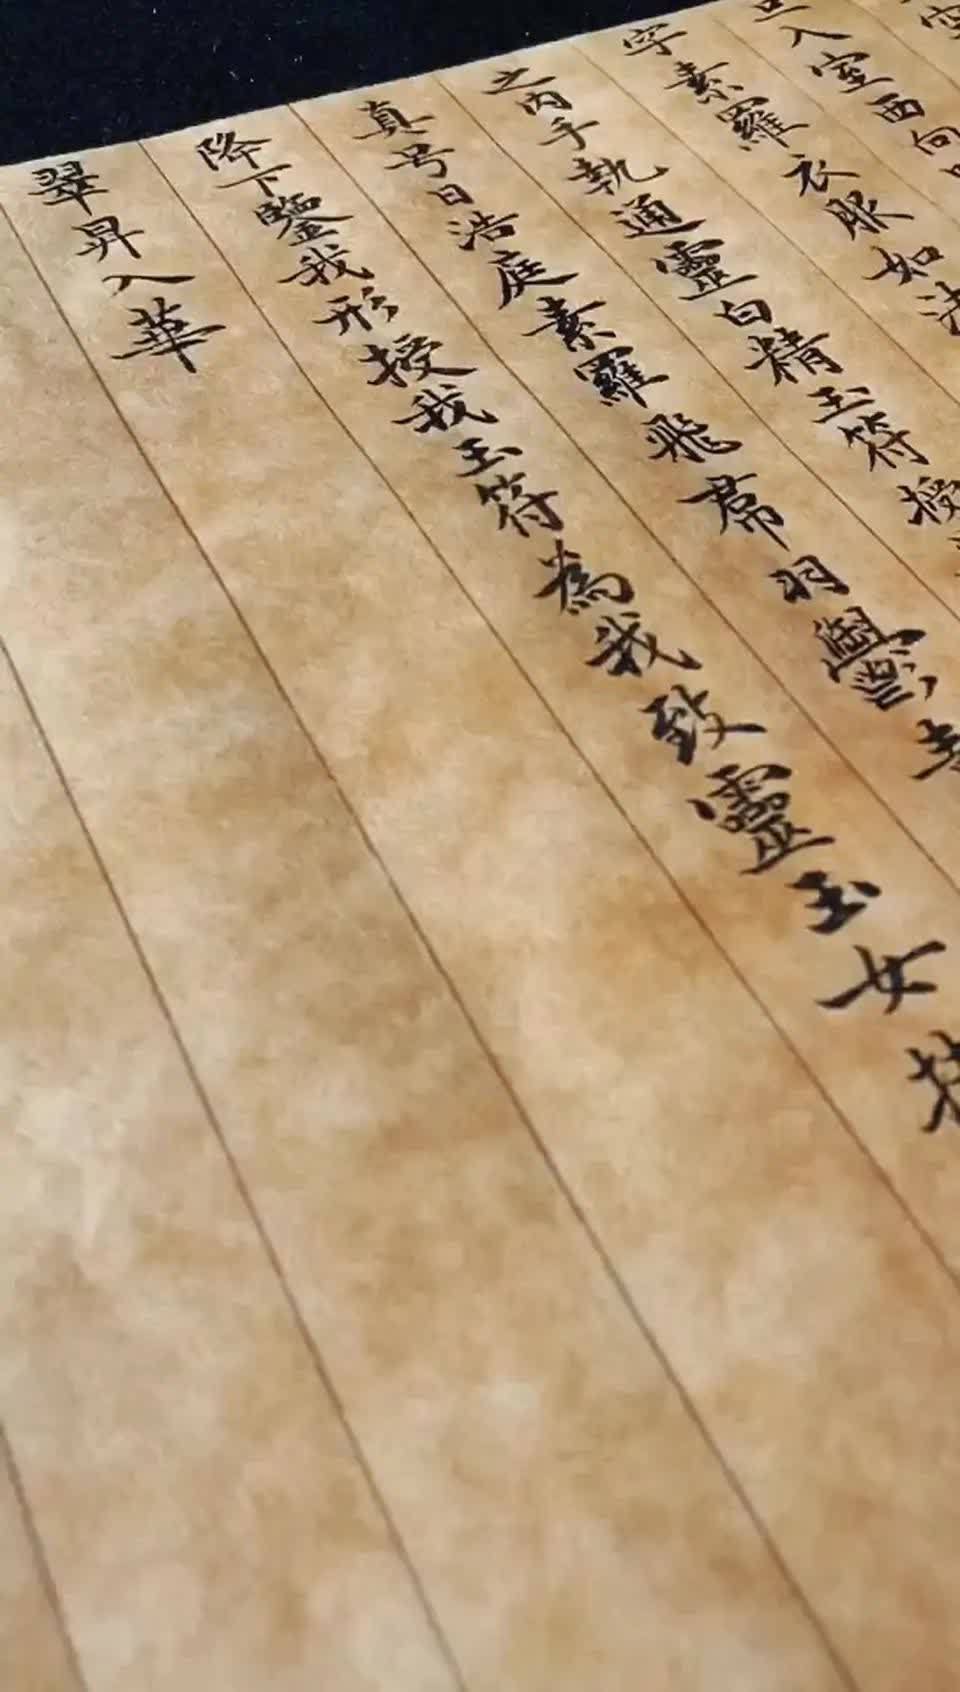 入室西向
字素羅衣服如
之内手執通靈白精玉符授
真号曰浩庭素羅飛帬羽
降下鑒我形授我玉符為我致靈玉女
翠昇入華